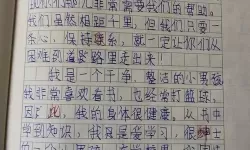 你们的幼儿非常需要我们的帮助。
我们虽然相距十里,但我们只要一
条心,保持联系,就一定让你们从
困难到道路路里走出来!
我是一个干净、整洁的小男孩
我非常喜欢看书,也经常打篮球,
因此,我的身体很健康。从书中
学到知识,我只是爱学习,很绅士